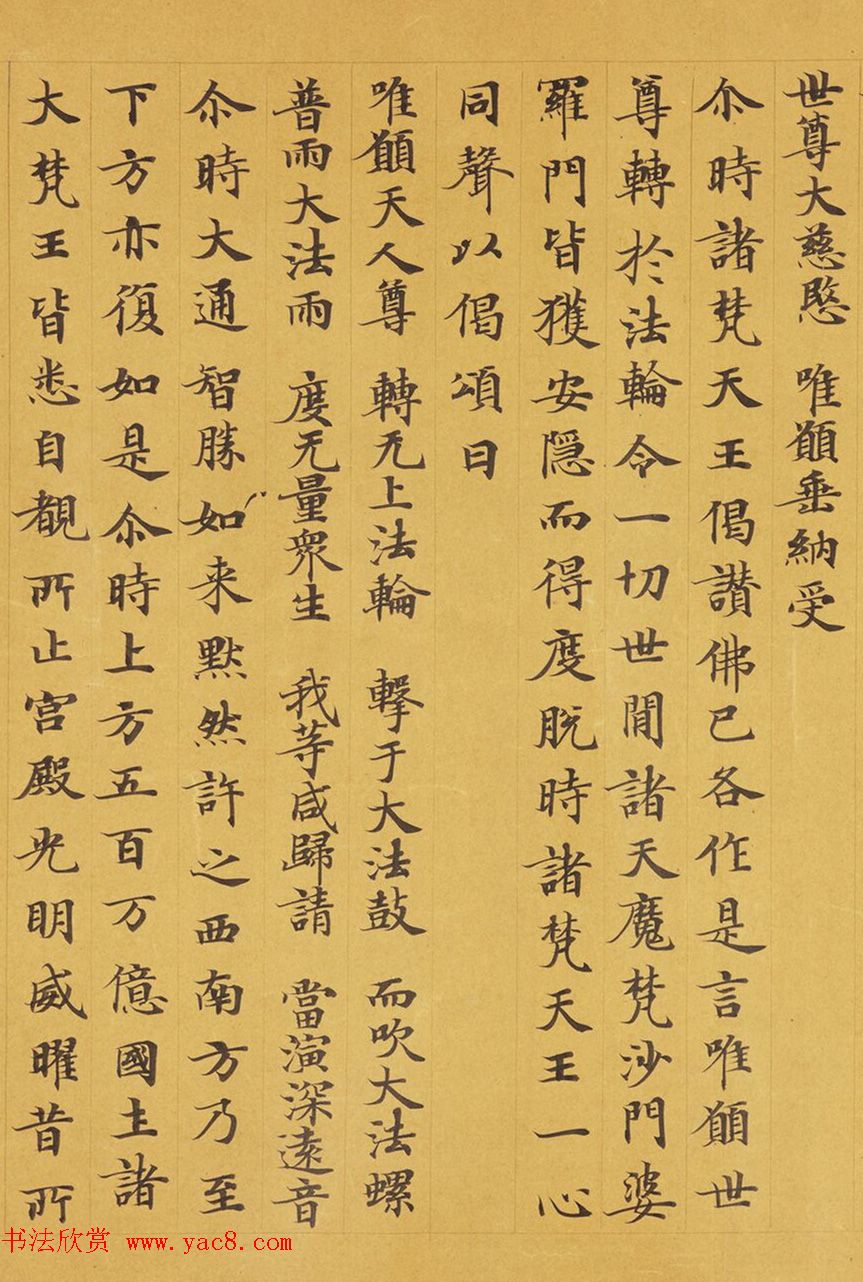 世尊大慈愍　唯願垂納受
尒時諸梵天王偈讃佛已各作是言唯願世
尊轉於法輪令一切世間諸天魔梵沙門婆
羅門皆獲安隱而得度脱時諸梵天王一心
同聲以偈頌曰
唯願天人尊　轉无上法輪　擊于大法鼓　而吹大法螺
普雨大法雨　度无量衆生　我等咸歸請　當演深遠音
尒時大通智勝如来黙然許之西南方乃至
下方亦復如是尒時上方五百万億國土諸
大梵王皆悉自覩所止宮殿光明威曜昔所
书法欣赏 www.yac8.com